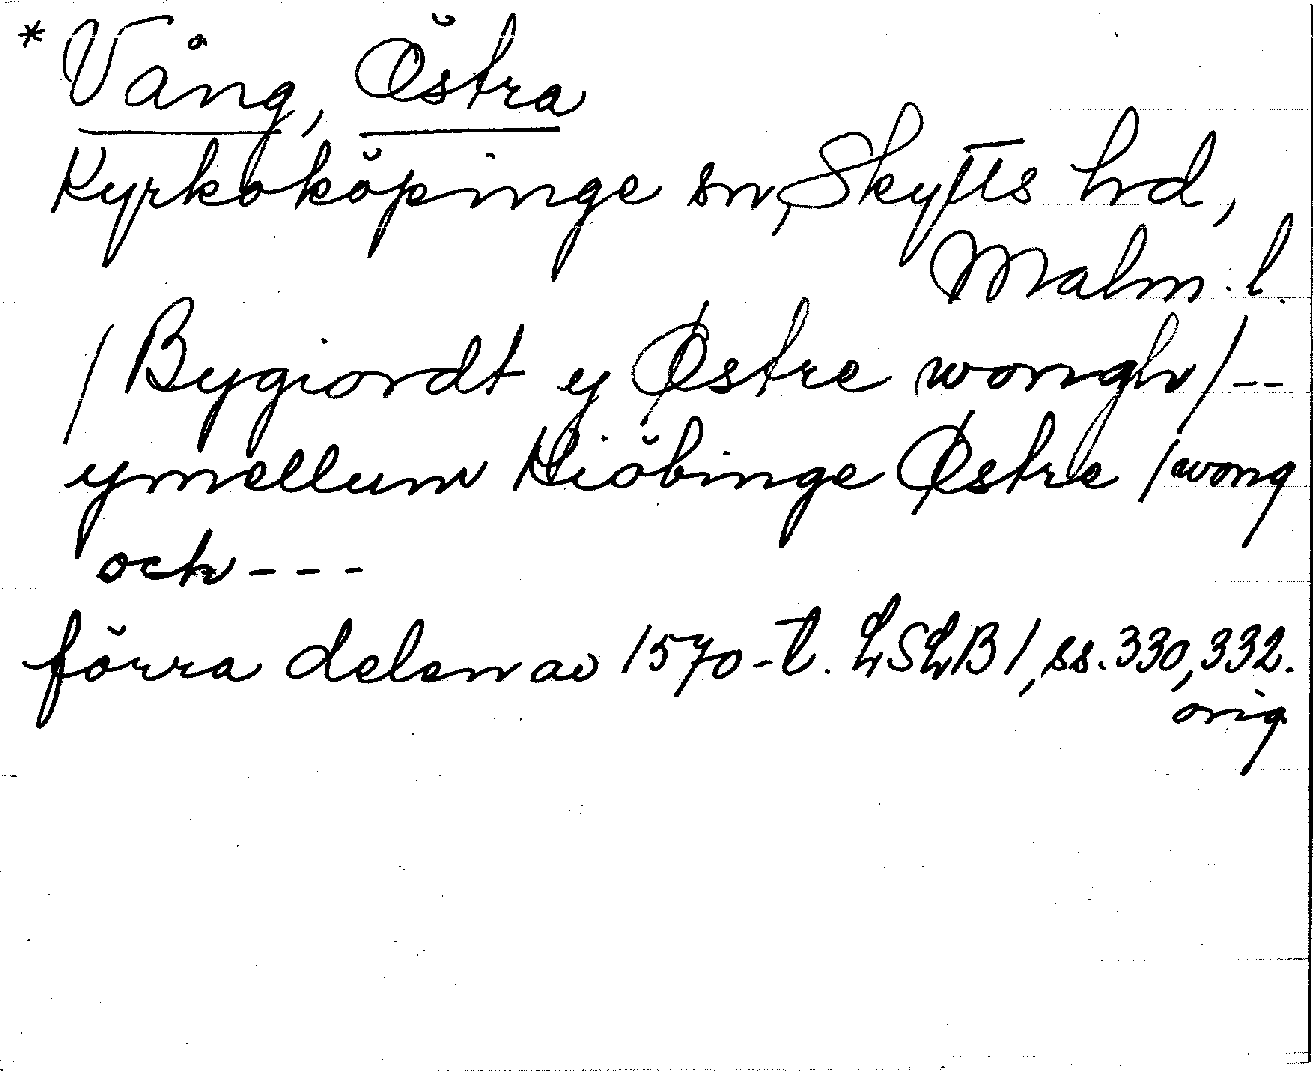 * Vång, Östra
Kyrkoköpinge sn, Skytts hd,
Malm. l.
/ Bygiordt y Østre wongh / --
ymellum Kiöbinge Østre / wong
och ---
förra delen av 1570-t. LSLB 1, ss. 330, 332.
orig